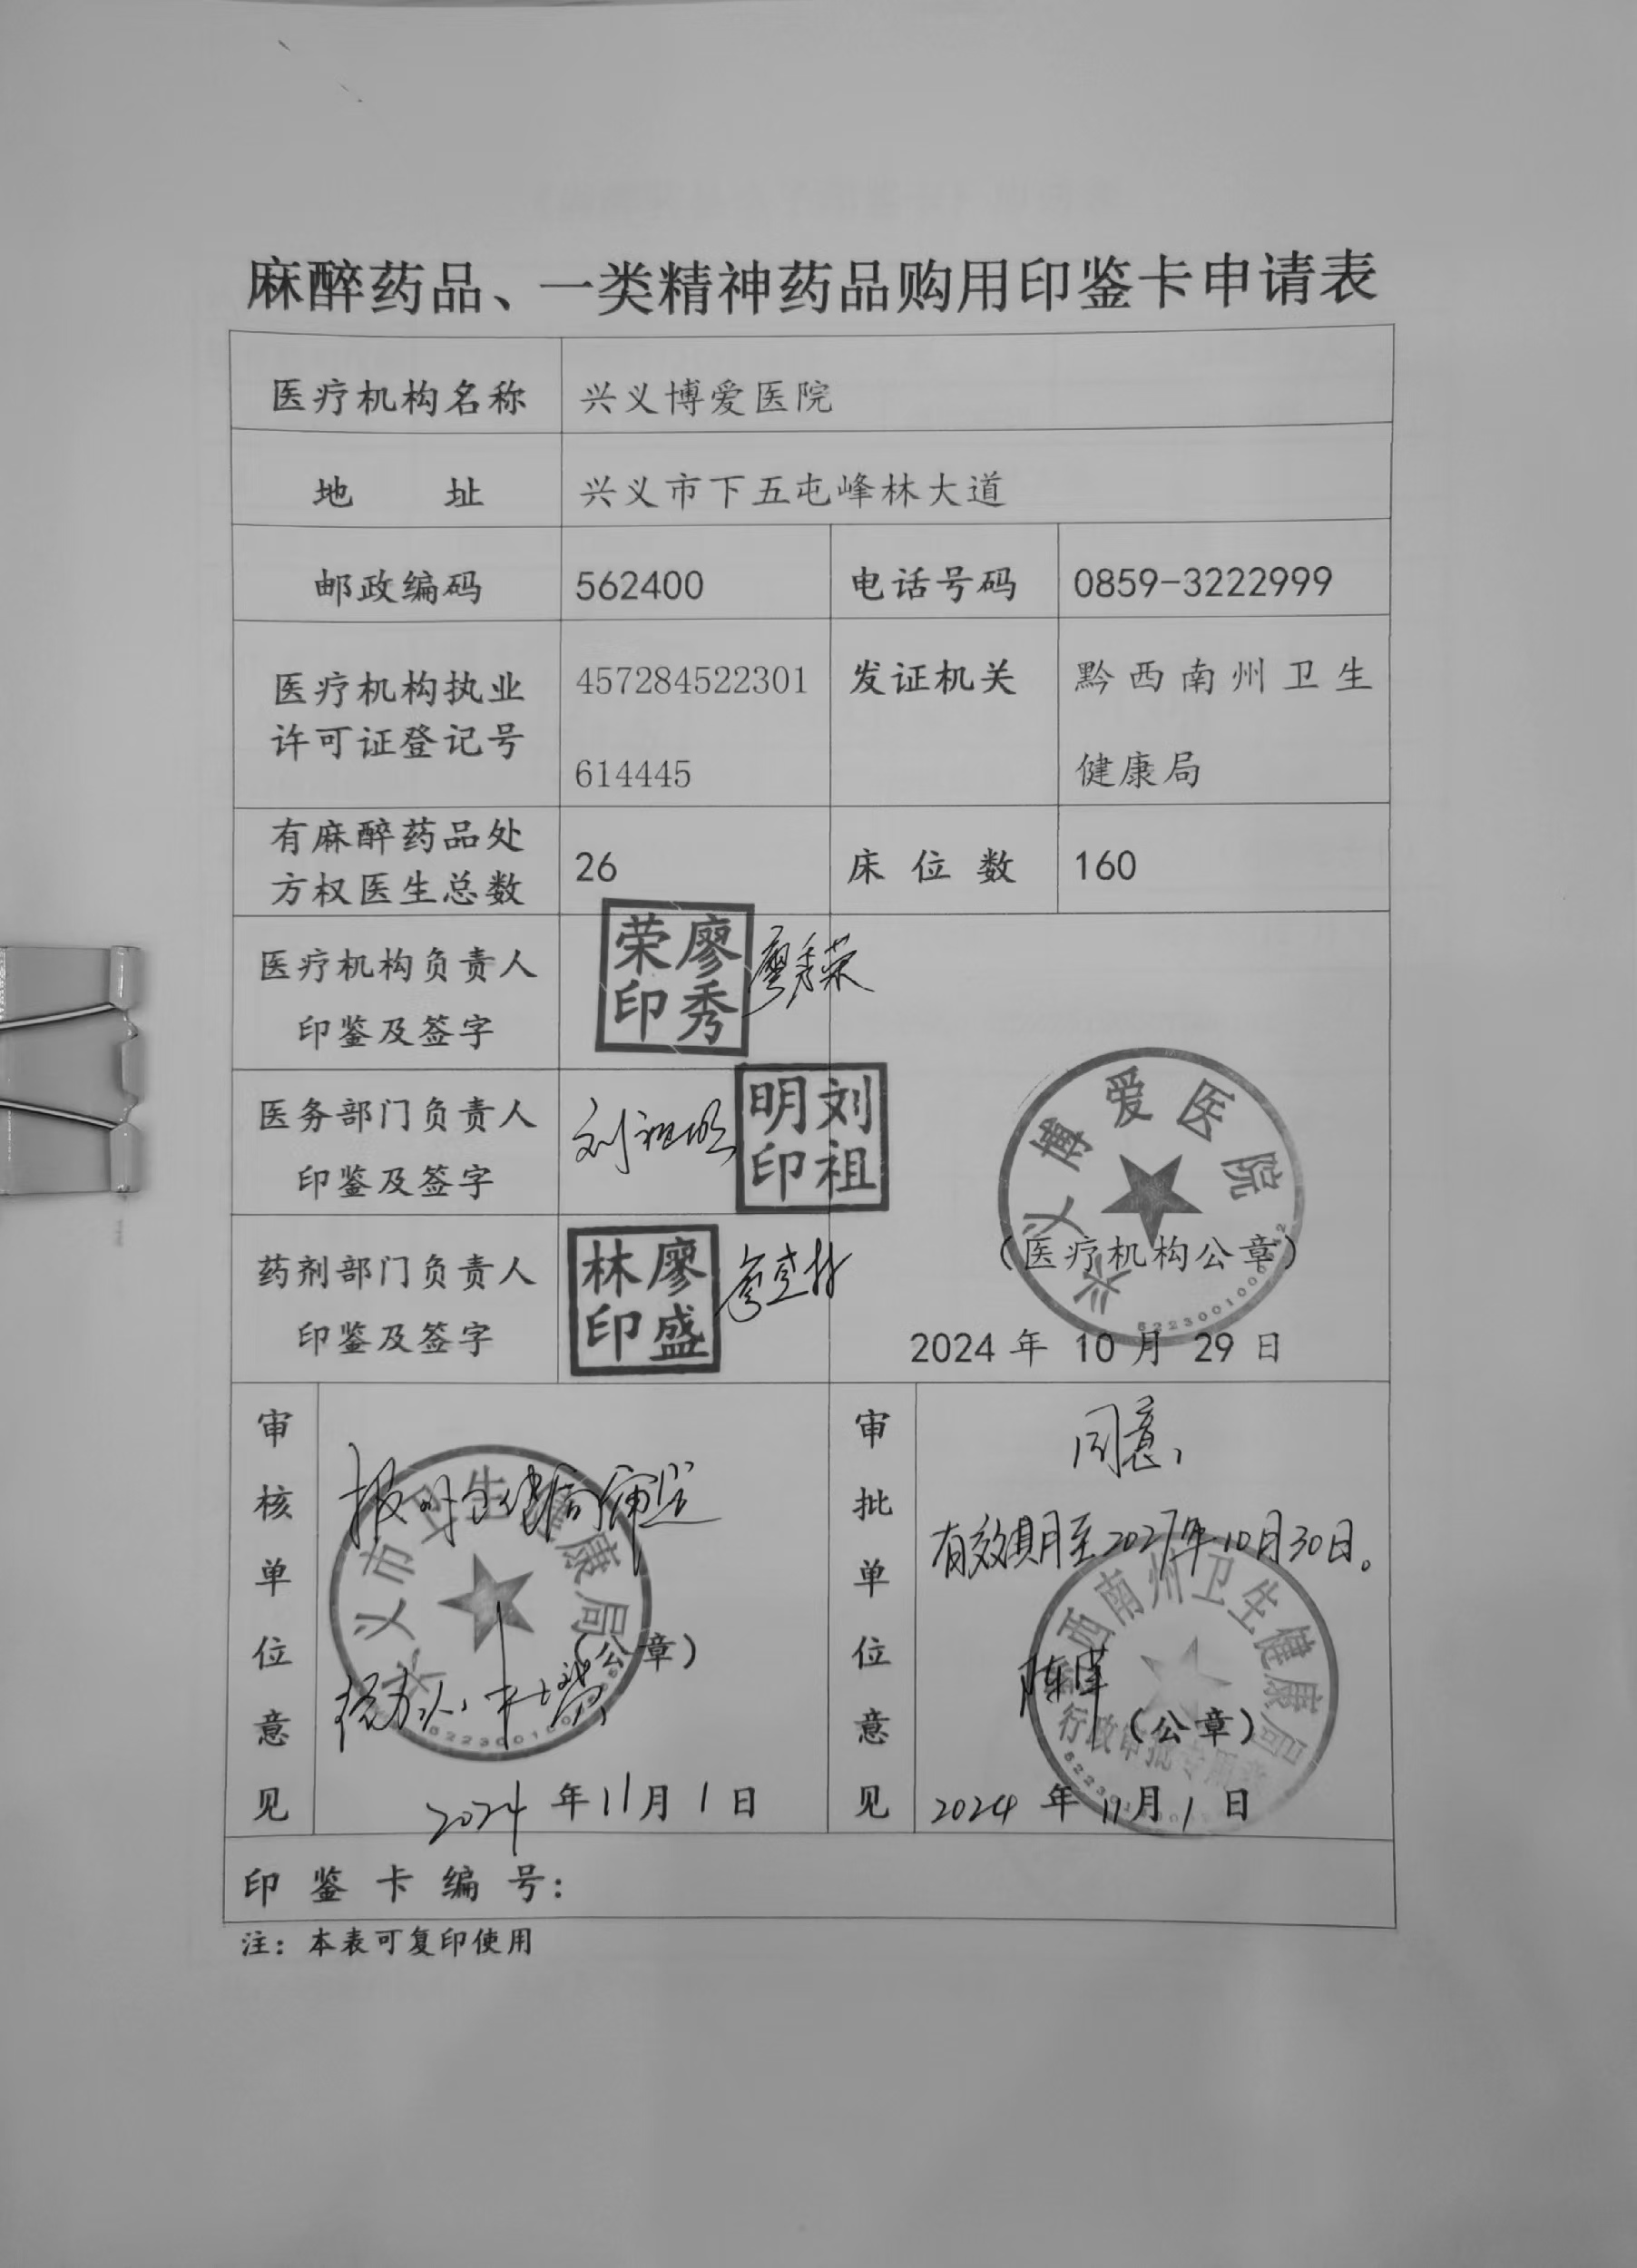 麻醉药品、一类精神药品购用印鉴卡申请表
医疗机构名称 兴义博爱医院
地 址 兴义市下五屯峰林大道
邮政编码 562400 电话号码 0859-3222999
医疗机构执业
许可证登记号
457284522301
614445
发证机关
黔西南州卫生
健康局
有麻醉药品处
方权医生总数
26
床位数 160
医疗机构负责人
印鉴及签字
荣廖
印秀
廖秀荣
医务部门负责人
印鉴及签字
刘祖明
明刘
印祖
药剂部门负责人
印鉴及签字
林廖
印盛
廖盛林
兴义博爱医院
(医疗机构公章)
2024 年 10 月 29 日
审核单位意见
报州卫健局审定
兴义市卫生健康局
(公章)
经办人:
2024 年 11 月 1 日
审批单位意见
同意,
有效期月至2027年10月30日。
黔西南州卫生健康局
行政审批专用章
(公章)
2024 年 11 月 1 日
印鉴卡编号:
注:本表可复印使用